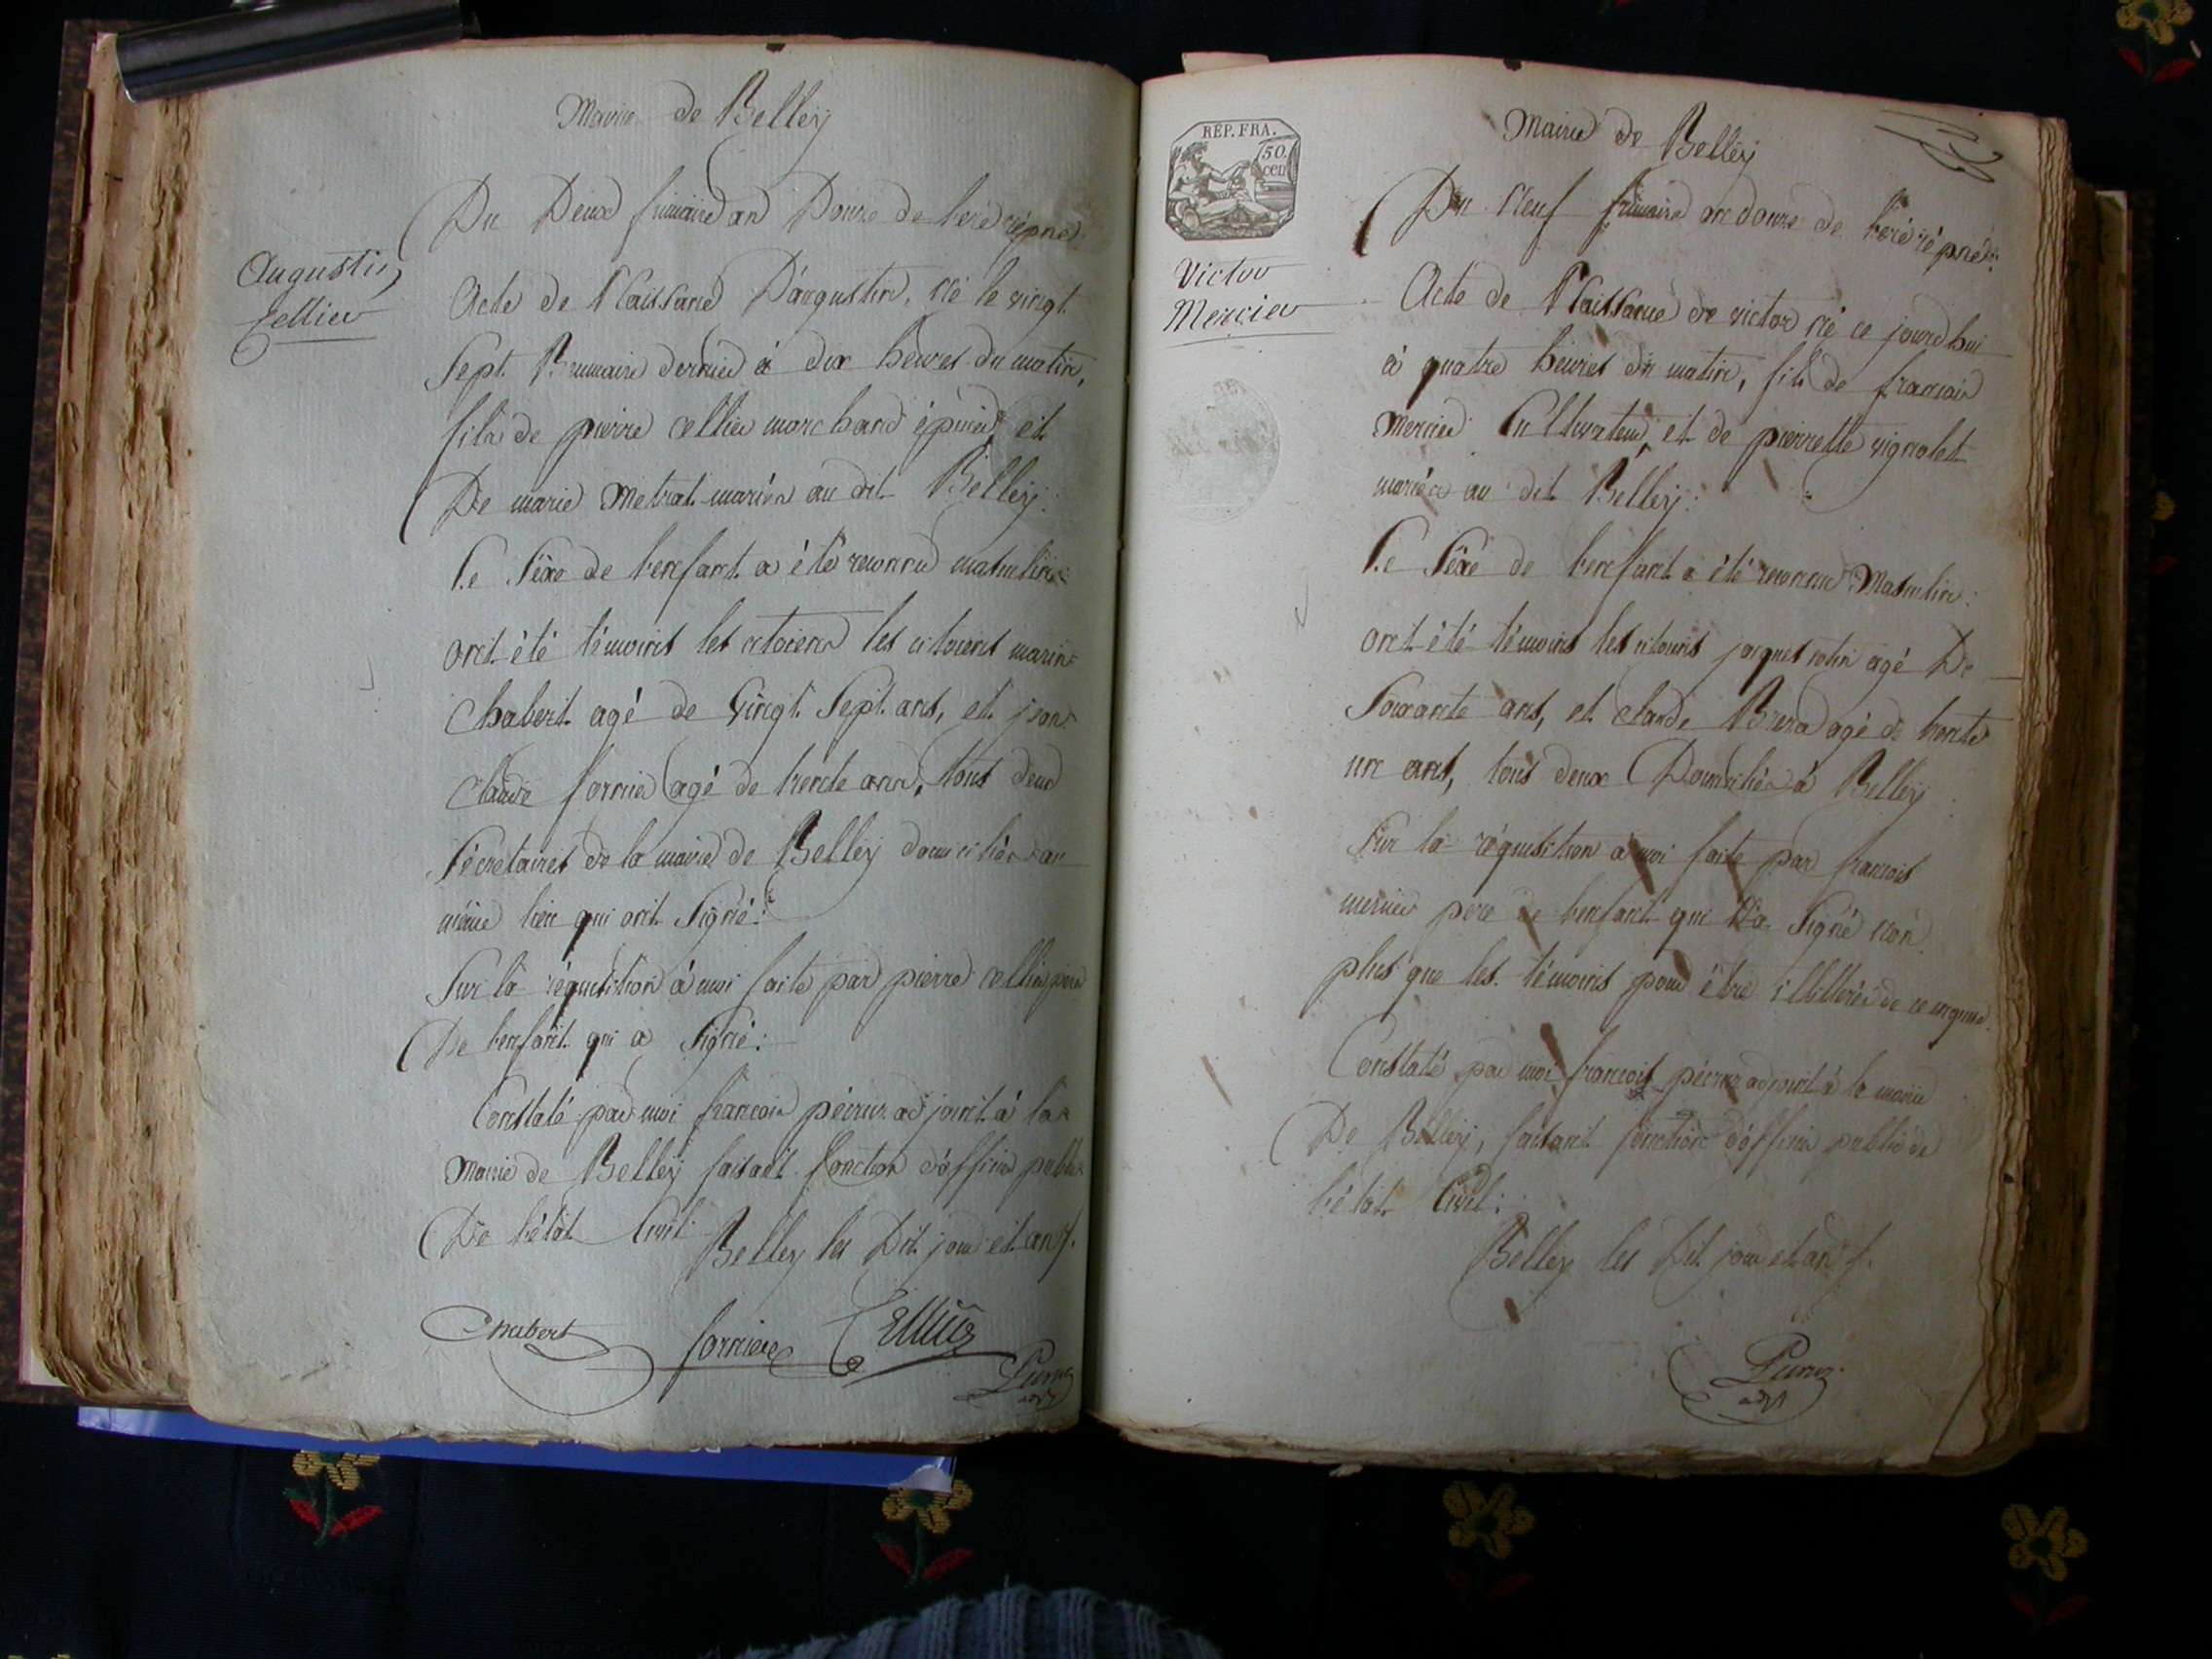 Mairie de Belley
Du Deux frimaire an Douze de l'ere répne
Augustin
Cellier
Acte de Naissance D'augustin, né le vingt
Sept Brumaire dernier à dix heures du matin,
fils de pierre cellier marchand épicier et
De marie Metrat mariés au dit Belley:
Le Séxe de l'enfant a été reconnu masculin
ont été témoins les citoiens les citoiens marin
Chabert agé de Vingt Sept ans, et jean
Claude fornier agé de trente ans, tous deux
Sécretaires de la mairie de Belley domiciliés au
même lieu qui ont Signé:
Sur la réquisition à moi faite par pierre cellier pere
De l'enfant qui a Signé:
Constaté par moi francois pécruz adjoint à la
Mairie de Belley faisant fonction d'officier public
De l'état Civil
Belley les Dit jour et an
Chabert forniere Cellier
adjt
RÉP. FRA.
50.
cen
Mairie de Belley
Du Neuf frimaire an douze de l'ere répne:
Victor
Mercier
Acte de Naissance de victor né ce jourd'hui
à quatre heures du matin, fils de francois
Mercier Cultivateur, et de pierrette vignolet
mariés au dit Belley:
Le Séxe de l'enfant a été reconnu Masculin:
ont été témoins les citoiens jacques agé De
Soixante ans, et claude agé de trente
un ans, tous deux Domiciliés à Belley
Sur la réquisition a moi faite par francois
mercier pere de l'enfant qui N'a Signé non
plus que les témoins pour être illitterés de ce enquis
Constaté par moi francois pécruz adjoint à la mairie
De Belley, faisant fonction d'officier public de
l'état Civil:
Belley les Dit jour et an
adjt